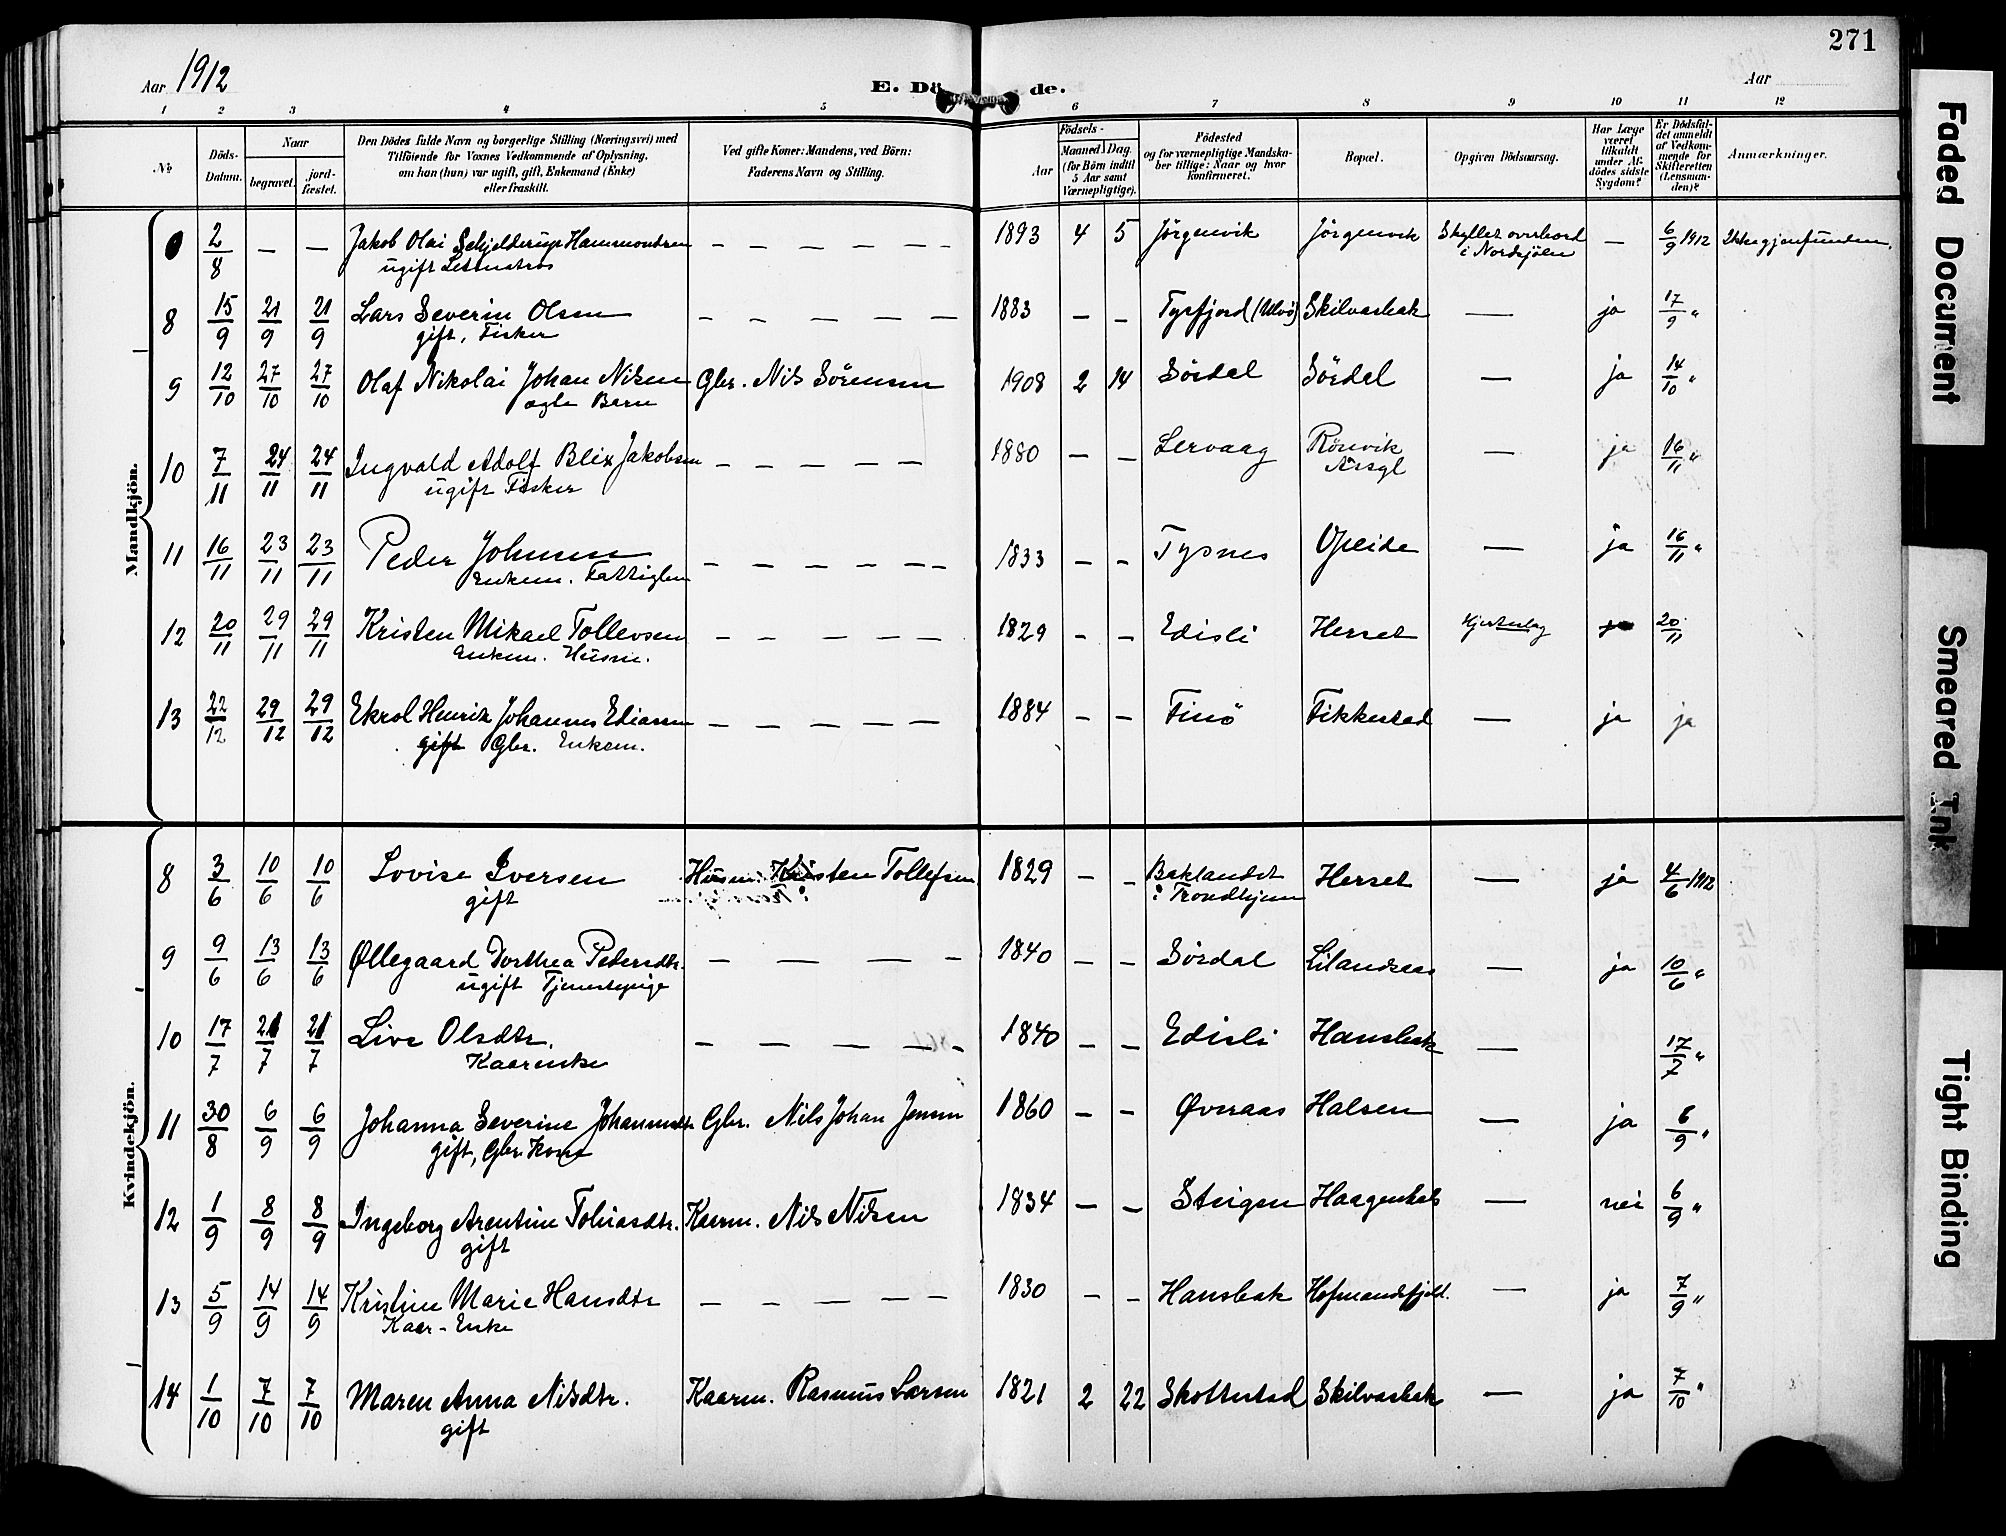 271
Aar 1912
E. Dö de.
Aar
1 2 3 4 5 6 7 8 9 10 11 12
No
Döds-Datum.
Naar
begravet.
jord-fæstet.
Den Dödes fulde Navn og borgerlige Stilling (Næringsvei) med
Tilföiende for Voxnes Vedkommende af Oplysning,
om han (hun) var ugift, gift, Enkemand (Enke)
eller fraskilt.
Ved gifte Koner: Mandens, ved Börn:
Faderens Navn og Stilling.
Födsels-
Aar
Maaned Dag
(for Börn indtil
5 Aar samt
Værnepligtige).
Födested
og for værnepligtige Mandska-
ber tillige: Naar og hvor
konfirmeret.
Bopæl.
Opgiven Dödsaarsag.
Har Læge
været
tilkaldt
under Af-
dödes sidste
Sygdom?
Er Dödsfal-
det anmeldt
af Vedkom-
mende for
Skifteretten
(Lensman-
den)?
Anmærkninger.
Mandkjön.
2/8 — — Jakob Olai Schjelderup Hammondsen — — — — — — 1893 4 5 Jørgenvik Jørgenvik Skyllet overbord — 6/9 1912 Ikke gjenfunden.
ugift i Nordsjøen
8 15/9 21/9 21/9 Lars Severin Olsen — — — — — 1883 — — Tysfjord (Ulvø) Skilvasbak — ja 17/9 "
gift, Fisker
9 12/10 27/10 27/10 Olaf Nikolai Johan Nilsen Gbr. Nils Sörensen 1908 2 14 Sördal Sördal — ja 14/10 "
ægte Barn
10 7/11 24/11 24/11 Ingvald Adolf Blix Jakobsen — — — — — 1880 — — Lervaag Rösvik — ja 16/11 "
ugift Fisker
11 16/11 23/11 23/11 Peder Johnsen — — — — — — 1833 — — Tysnes Opeide — ja 16/11 "
Enkem. Fattiglem
12 20/11 29/11 29/11 Kristen Mikael Tollevsen — — — — — 1829 — — Edisli Herset Hjerteslag ja 20/11
Enkem. Husm.
13 22/12 29/12 29/12 Ekrol Henrik Johannes Ediassen — — — — — 1884 — — Finö Fikkestad — ja ja
gift Gbr. Enkem.
Kvindekjön.
8 3/6 10/6 10/6 Lovise Iversen Husm. Kristen Tollefsen 1829 — — Baklandet Herset — ja 4/6 1912
gift i Trondhjem
9 9/6 13/6 13/6 Øllegaard Dorthea Pedersdtr. — — — — 1840 — — Sördal Lilandsaas — ja 10/6 "
ugift Tjenestepige
10 17/7 21/7 21/7 Live Olsdtr. — — — — — 1840 — — Edisli Hansbak — 17/7 "
Kaarenke
11 30/8 6/9 6/9 Johanna Severine Johannesdtr Gbr. Nils Johan Jensen 1860 — — Øveraas Halsen — ja 6/9 "
gift, Gbr. Kone
12 1/9 8/9 8/9 Ingeborg Arentine Tobiasdtr. Kaarm. Nils Nilsen 1834 — — Steigen Haagenbak — nei 6/9 "
gift
13 5/9 14/9 14/9 Kristine Marie Hansdtr — — — — — 1830 — — Hansbak Hofmandsfjeld. — ja 7/9 "
Kaar-Enke
14 1/10 7/10 7/10 Maren Anna Nilsdtr. Kaarm. Rasmus Larsen 1821 2 22 Skottestad Skilvasbak — ja 7/10 "
gift
Faded Document
Smeared Ink
Tight Binding